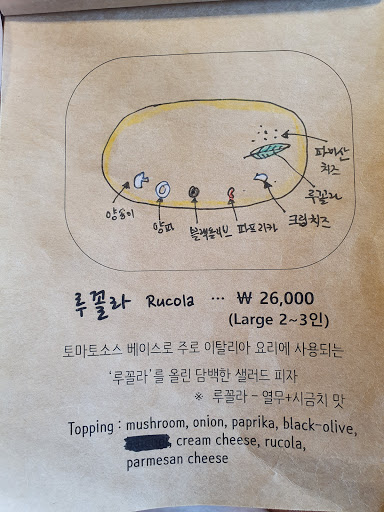 파마산
치즈
루꼴라
양송이
양파
블랙올리브
파프리카
크림치즈
루꼴라 Rucola ··· ₩ 26,000
(Large 2~3인)
토마토소스 베이스로 주로 이탈리아 요리에 사용되는
‘루꼴라’를 올린 담백한 샐러드 피자
※ 루꼴라 - 열무+시금치 맛
Topping : mushroom, onion, paprika, black-olive,
cream cheese, rucola,
parmesan cheese